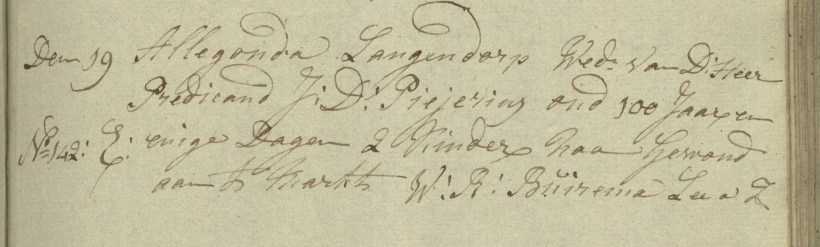 Den 19 Allegonda Langendorp Wed: van D Heer
Predicand J: D: Piejering oud 100 Jaar en
No 142: E: enige Dagen 2 Kinder
aan d Markt W: R: Buirema